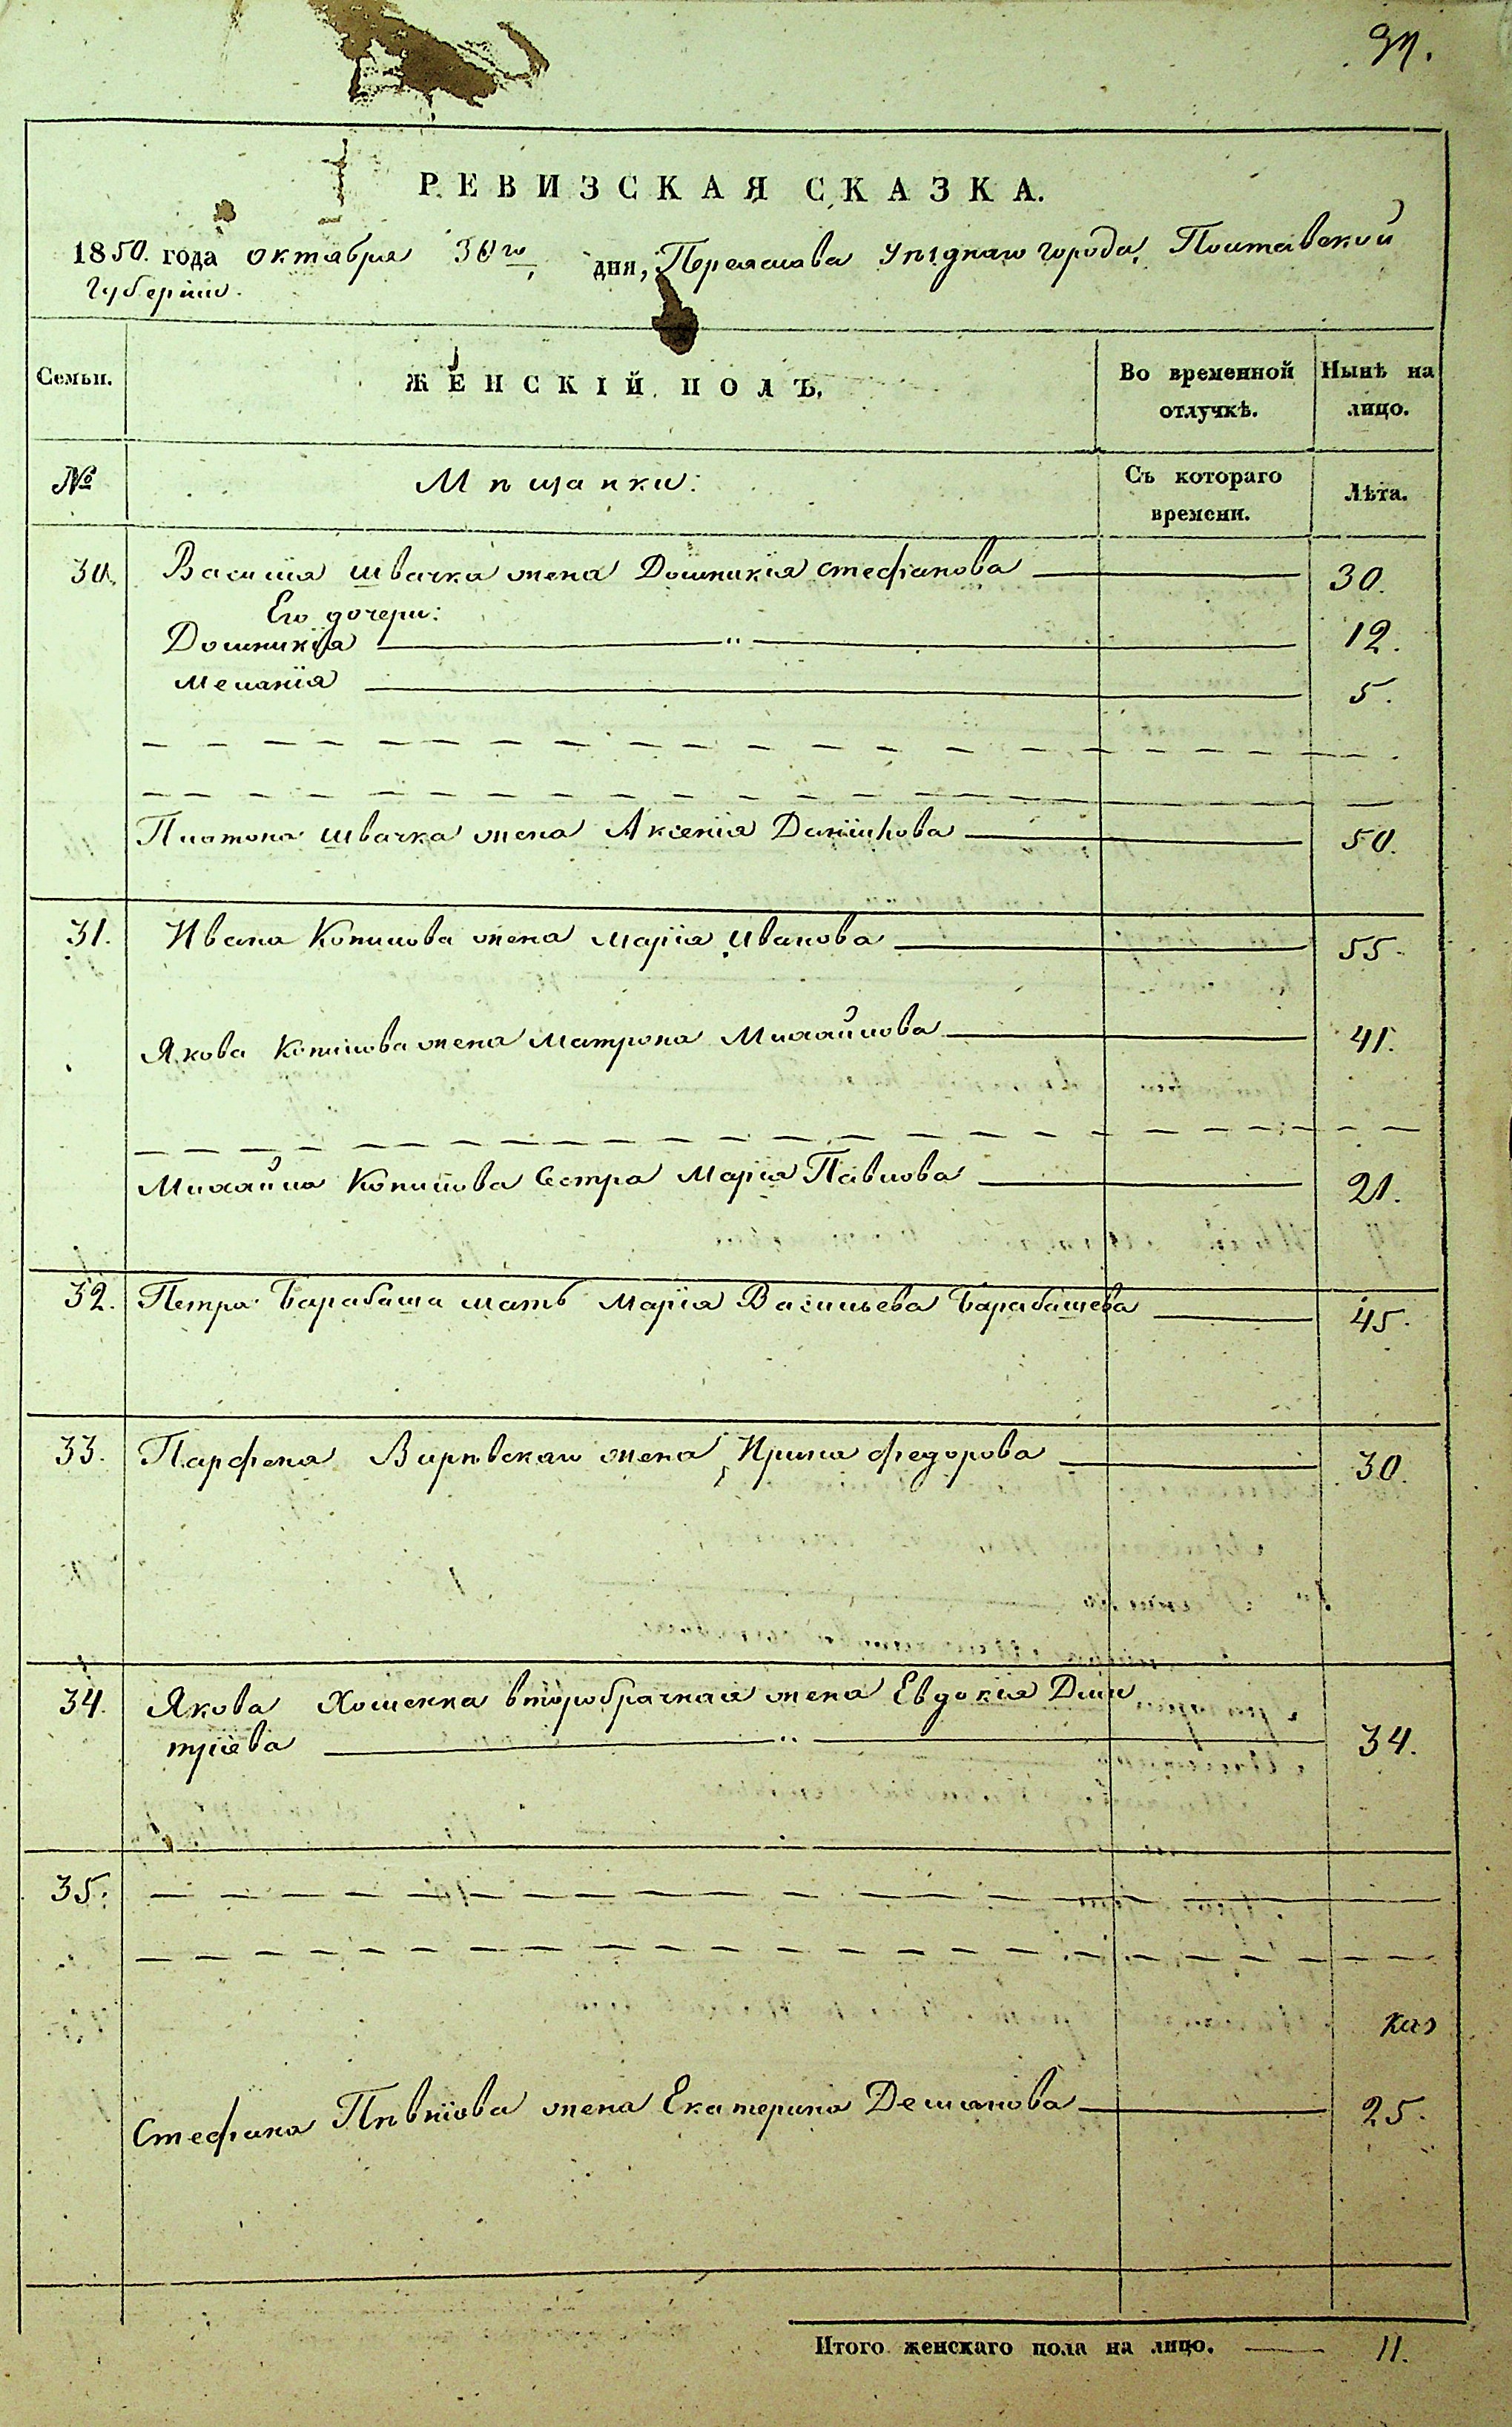 37.
РЕВИЗСКАЯ СКАЗКА.
1850. года октября 30го дня, Переяслава Уѣзднаго города, Полтавской
Губерніи.
Семьи.
ЖЕНСКІЙ ПОЛЪ.
Во временной
отлучкѣ.
Нынѣ на
лицо.
№
Мѣщанки:
Съ котораго
времени.
Лѣта.
30. Василія Швачка жена Домникія Стефанова 30.
Его дочери:
Домникія " 12.
Меланія 5.
Платона Швачка жена Аксенія Даніилова 50.
31. Ивана Копилова жена Марія Иванова 55.
Якова Копилова жена Матрона Михайлова 41.
Михайла Копилова Сестра Марія Павлова 21.
32. Петра Барабаша мать Марія Васильева Барабашева 45.
33. Парфена Вирѣвскаго жена Ирина Федорова 30.
34. Якова Хоменка второбрачная жена Евдокія Дми
тріева " 34.
35.
Стефана Пѣвнева жена Екатерина Деманова 25.
Итого женскаго пола на лицо. 11.